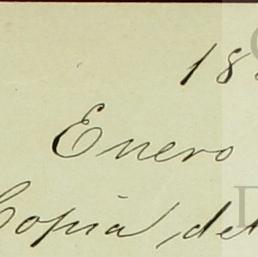 18
Enero
Copia del